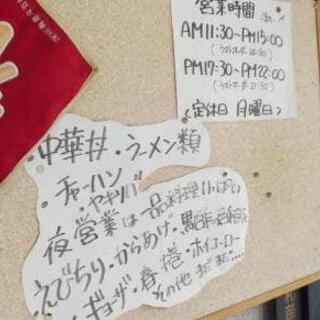 営業時間
AM11:30~PM15:00
(ラストオーダー14:30)
PM17:30~PM22:00
(ラストオーダー21:30)
<定休日 月曜日>
・中華丼・ラーメン類
チャーハン
ヤキソバ
夜営業は一品料理いっぱい
えびちり・からあげ・
ギョーザ・春巻・ホイコーロー
その他まだまだ…